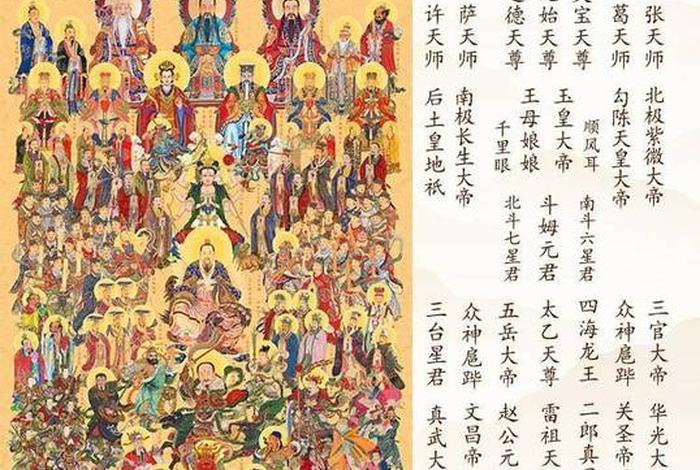 张天师
葛天师
宝天尊
始天尊
德天尊
萨天师
许天师
北极紫微大帝
勾陈天皇大帝
顺风耳
玉皇大帝
王母娘娘
千里眼
南极长生大帝
后土皇地祇
南斗六星君
斗姆元君
北斗七星君
三官大帝
众神扈跸
四海龙王
太乙天尊
五岳大帝
众神扈跸
三台星君
华光大
关圣帝
二郎真
雷祖天
赵公元
文昌帝
真武大